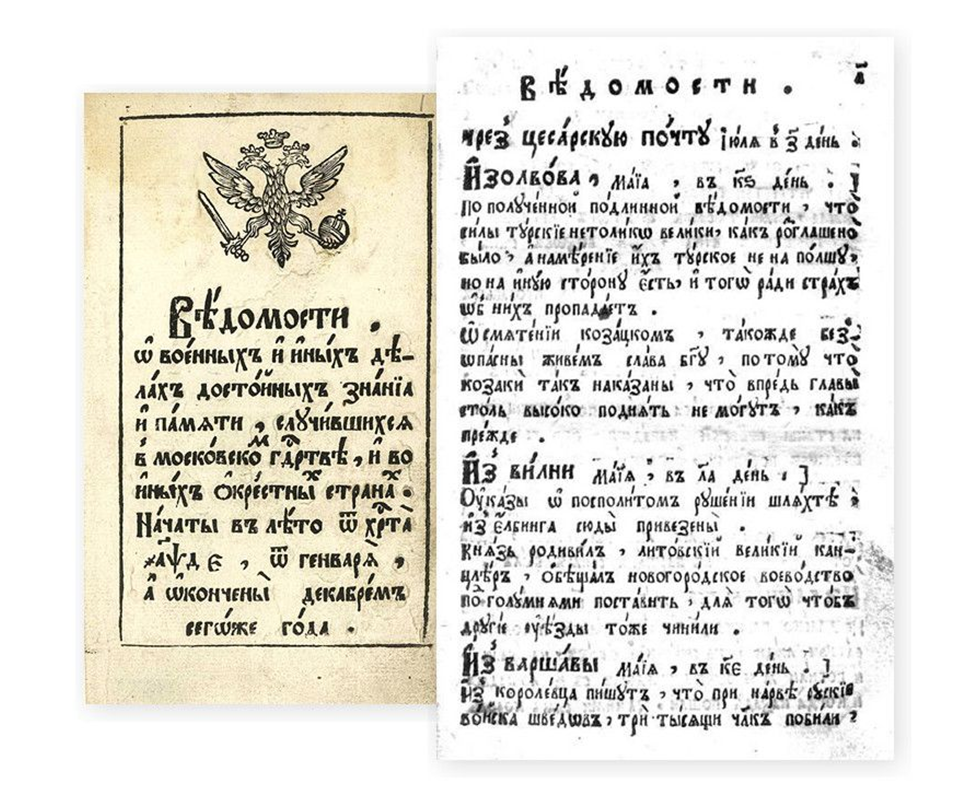 Вѣ́домости .
ѡ҆ вое́нныхъ и҆ и҆ны́хъ дѣ-
ла́хъ досто́йныхъ зна́нїѧ
и҆ па́мѧти , случи́вшихсѧ
в̾ моско́вскоⷨ гдⷭ҇рⷭ҇твѣ , и҆ во
и҆ны́хъ о҆кре́стныⷯ страна́ⷯ .
На́чаты въ лѣ́то ѿ хрⷭ҇та̀
҂а҃ѱд є , ѿ генварѧ̀ ,
а҆ ѡ҆кончены̀ декабре́мъ
сегѡ́же го́да .
Вѣ́домости .
чрез̾ цеса́рскую по́чту і҆ю́лѧ в̾ з҃ де́нь
И҆зольво́ва , маїа , въ к҃ѕ де́нь .
По полу́ченной подлинной вѣ́домости , что
силы ту́рскїе нетоликѡ велики , ка́къ роⷥглашено
было , а҆ намѣ́ренїе и҆́хъ ту́рское не на по́лшу ,
но на и҆ну́ю сторону є҆сть , и҆ тогѡ̀ ра́ди стра́хъ
ѡб̾ ни́хъ пропада́етъ .
Ѡ҆ смѧте́нїи коза́цкомъ , тако́жде без̾-
ѡпа́сны живе́мъ сла́ва бг҃у , по тому̀ что
козакѝ та́къ нака́заны , что̀ впре́дь главы̀
столь высоко поднѧ́ть не мо́гутъ , ка́къ
пре́жде .
И҆з̾ ви́лни маїѧ , въ л҃а де́нь .
Оу҆ка́зы ѡ҆ посполи́томъ руше́нїи шлѧхтѣ̀ ,
и҆з̾ є҆лбинга сюды̀ привезены̀ .
кнѧ́зь родиви́лъ , лито́вскїй вели́кїй ка́н-
цлѣръ , о҆бѣща́лъ новогоро́дское воево́дство
по голу́мнѧми поста́вить , длѧ̀ тогѡ̀ что́бъ
други́е оуѣ́зды то́же чини́ли .
И҆з̾ варша́вы маїѧ , въ к҃є де́нь .
и҆з̾ короле́вца пи́шутъ , что̀ при на́рвѣ ру́скїе
во́йска шве́дѡвъ , трѝ ты́сѧщи чл҃къ поби́ли ,